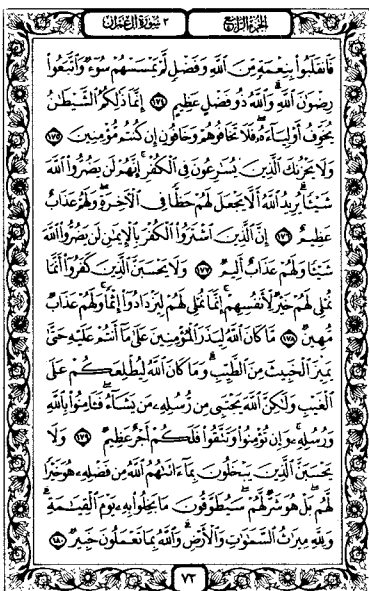 الجزء الرابع
٣ سورة آل عمران
فَٱنقَلَبُوا۟ بِنِعْمَةٍ مِّنَ ٱللَّهِ وَفَضْلٍ لَّمْ يَمْسَسْهُمْ سُوٓءٌ وَٱتَّبَعُوا۟
رِضْوَٰنَ ٱللَّهِ ۗ وَٱللَّهُ ذُو فَضْلٍ عَظِيمٍ ١٧٤ إِنَّمَا ذَٰلِكُمُ ٱلشَّيْطَٰنُ
يُخَوِّفُ أَوْلِيَآءَهُۥ فَلَا تَخَافُوهُمْ وَخَافُونِ إِن كُنتُم مُّؤْمِنِينَ ١٧٥
وَلَا يَحْزُنكَ ٱلَّذِينَ يُسَٰرِعُونَ فِى ٱلْكُفْرِ ۚ إِنَّهُمْ لَن يَضُرُّوا۟ ٱللَّهَ
شَيْـًٔا ۗ يُرِيدُ ٱللَّهُ أَلَّا يَجْعَلَ لَهُمْ حَظًّا فِى ٱلْـَٔاخِرَةِ ۖ وَلَهُمْ عَذَابٌ
عَظِيمٌ ١٧٦ إِنَّ ٱلَّذِينَ ٱشْتَرَوُا۟ ٱلْكُفْرَ بِٱلْإِيمَٰنِ لَن يَضُرُّوا۟ ٱللَّهَ
شَيْـًٔا وَلَهُمْ عَذَابٌ أَلِيمٌ ١٧٧ وَلَا يَحْسَبَنَّ ٱلَّذِينَ كَفَرُوٓا۟ أَنَّمَا
نُمْلِى لَهُمْ خَيْرٌ لِّأَنفُسِهِمْ ۚ إِنَّمَا نُمْلِى لَهُمْ لِيَزْدَادُوٓا۟ إِثْمًا ۚ وَلَهُمْ عَذَابٌ
مُّهِينٌ ١٧٨ مَّا كَانَ ٱللَّهُ لِيَذَرَ ٱلْمُؤْمِنِينَ عَلَىٰ مَآ أَنتُمْ عَلَيْهِ حَتَّىٰ
يَمِيزَ ٱلْخَبِيثَ مِنَ ٱلطَّيِّبِ ۗ وَمَا كَانَ ٱللَّهُ لِيُطْلِعَكُمْ عَلَى
ٱلْغَيْبِ وَلَٰكِنَّ ٱللَّهَ يَجْتَبِى مِن رُّسُلِهِۦ مَن يَشَآءُ ۖ فَـَٔامِنُوا۟ بِٱللَّهِ
وَرُسُلِهِۦ ۚ وَإِن تُؤْمِنُوا۟ وَتَتَّقُوا۟ فَلَكُمْ أَجْرٌ عَظِيمٌ ١٧٩ وَلَا
يَحْسَبَنَّ ٱلَّذِينَ يَبْخَلُونَ بِمَآ ءَاتَىٰهُمُ ٱللَّهُ مِن فَضْلِهِۦ هُوَ خَيْرًا
لَّهُم ۖ بَلْ هُوَ شَرٌّ لَّهُمْ ۖ سَيُطَوَّقُونَ مَا بَخِلُوا۟ بِهِۦ يَوْمَ ٱلْقِيَٰمَةِ ۗ
وَلِلَّهِ مِيرَٰثُ ٱلسَّمَٰوَٰتِ وَٱلْأَرْضِ ۗ وَٱللَّهُ بِمَا تَعْمَلُونَ خَبِيرٌ ١٨٠
٧٣